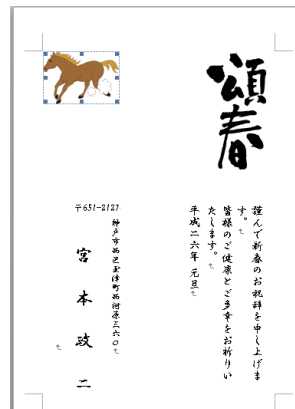 頌春
謹んで新春のお祝辞を申し上げま
す。
皆様のご健康とご多幸をお祈りい
たします。
平成二六年 元旦
〒651-2127
神戸市西区玉津町西河原三六〇
宮本政二